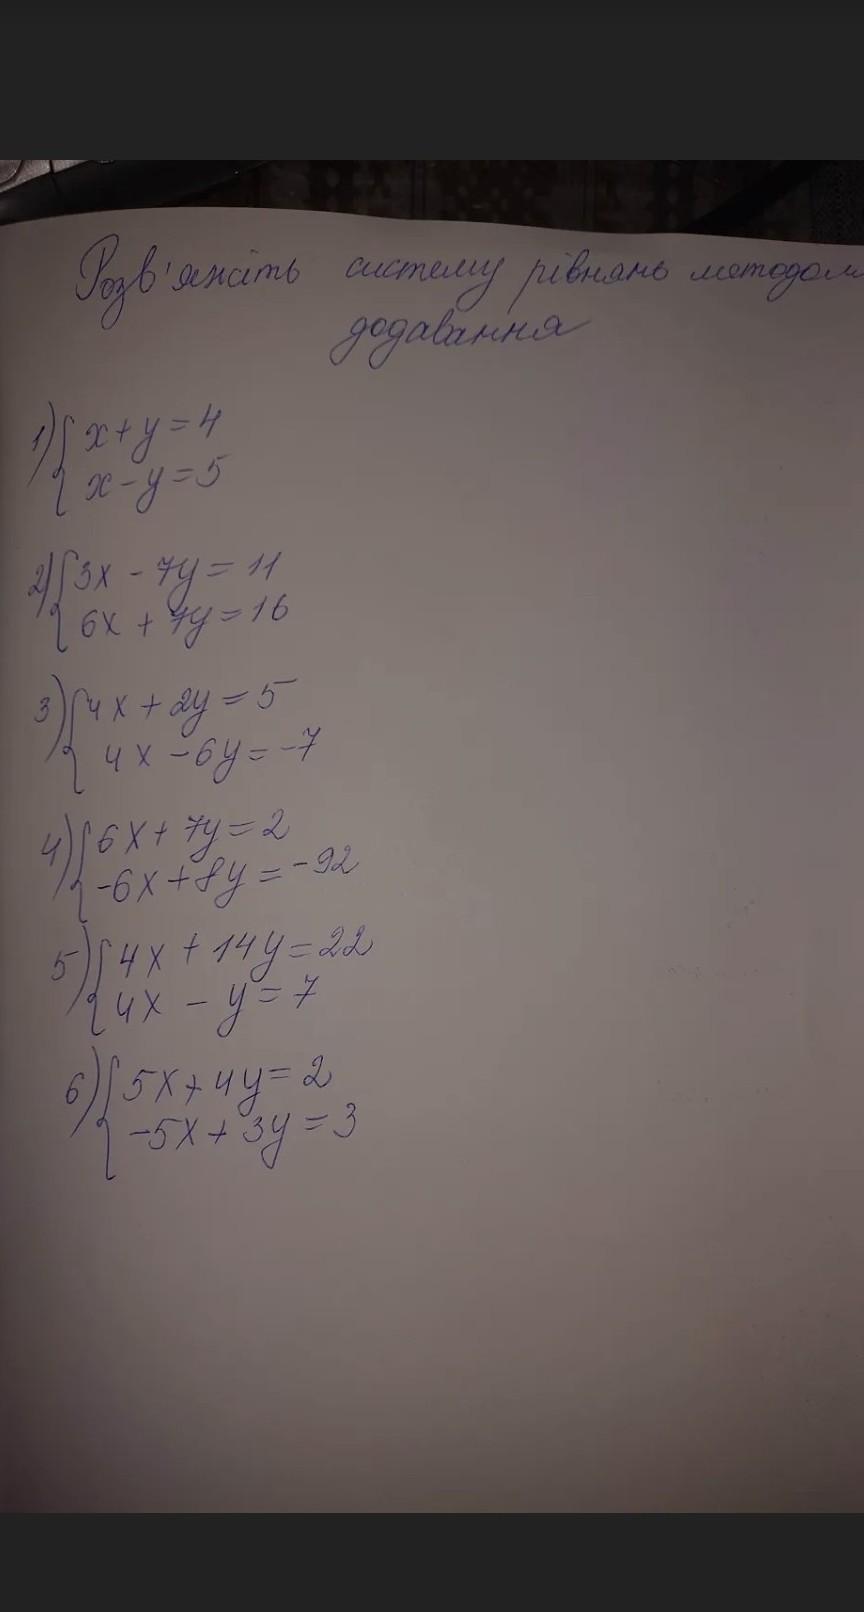 Розв'яжіть систему рівнянь методом
додавання
1) { x + y = 4
x - y = 5
2) { 3x - 7y = 11
6x + 7y = 16
3) { 4x + 2y = 5
4x - 6y = -7
4) { 6x + 7y = 2
-6x + 8y = -92
5) { 4x + 14y = 22
4x - y = 7
6) { 5x + 4y = 2
-5x + 3y = 3